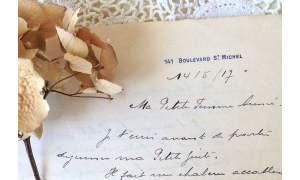 141 BOULEVARD ST MICHEL
14/5/17
Ma Petite Femme
Je t'écris avant de
déjeuner ma Petite
Il fait une chaleur